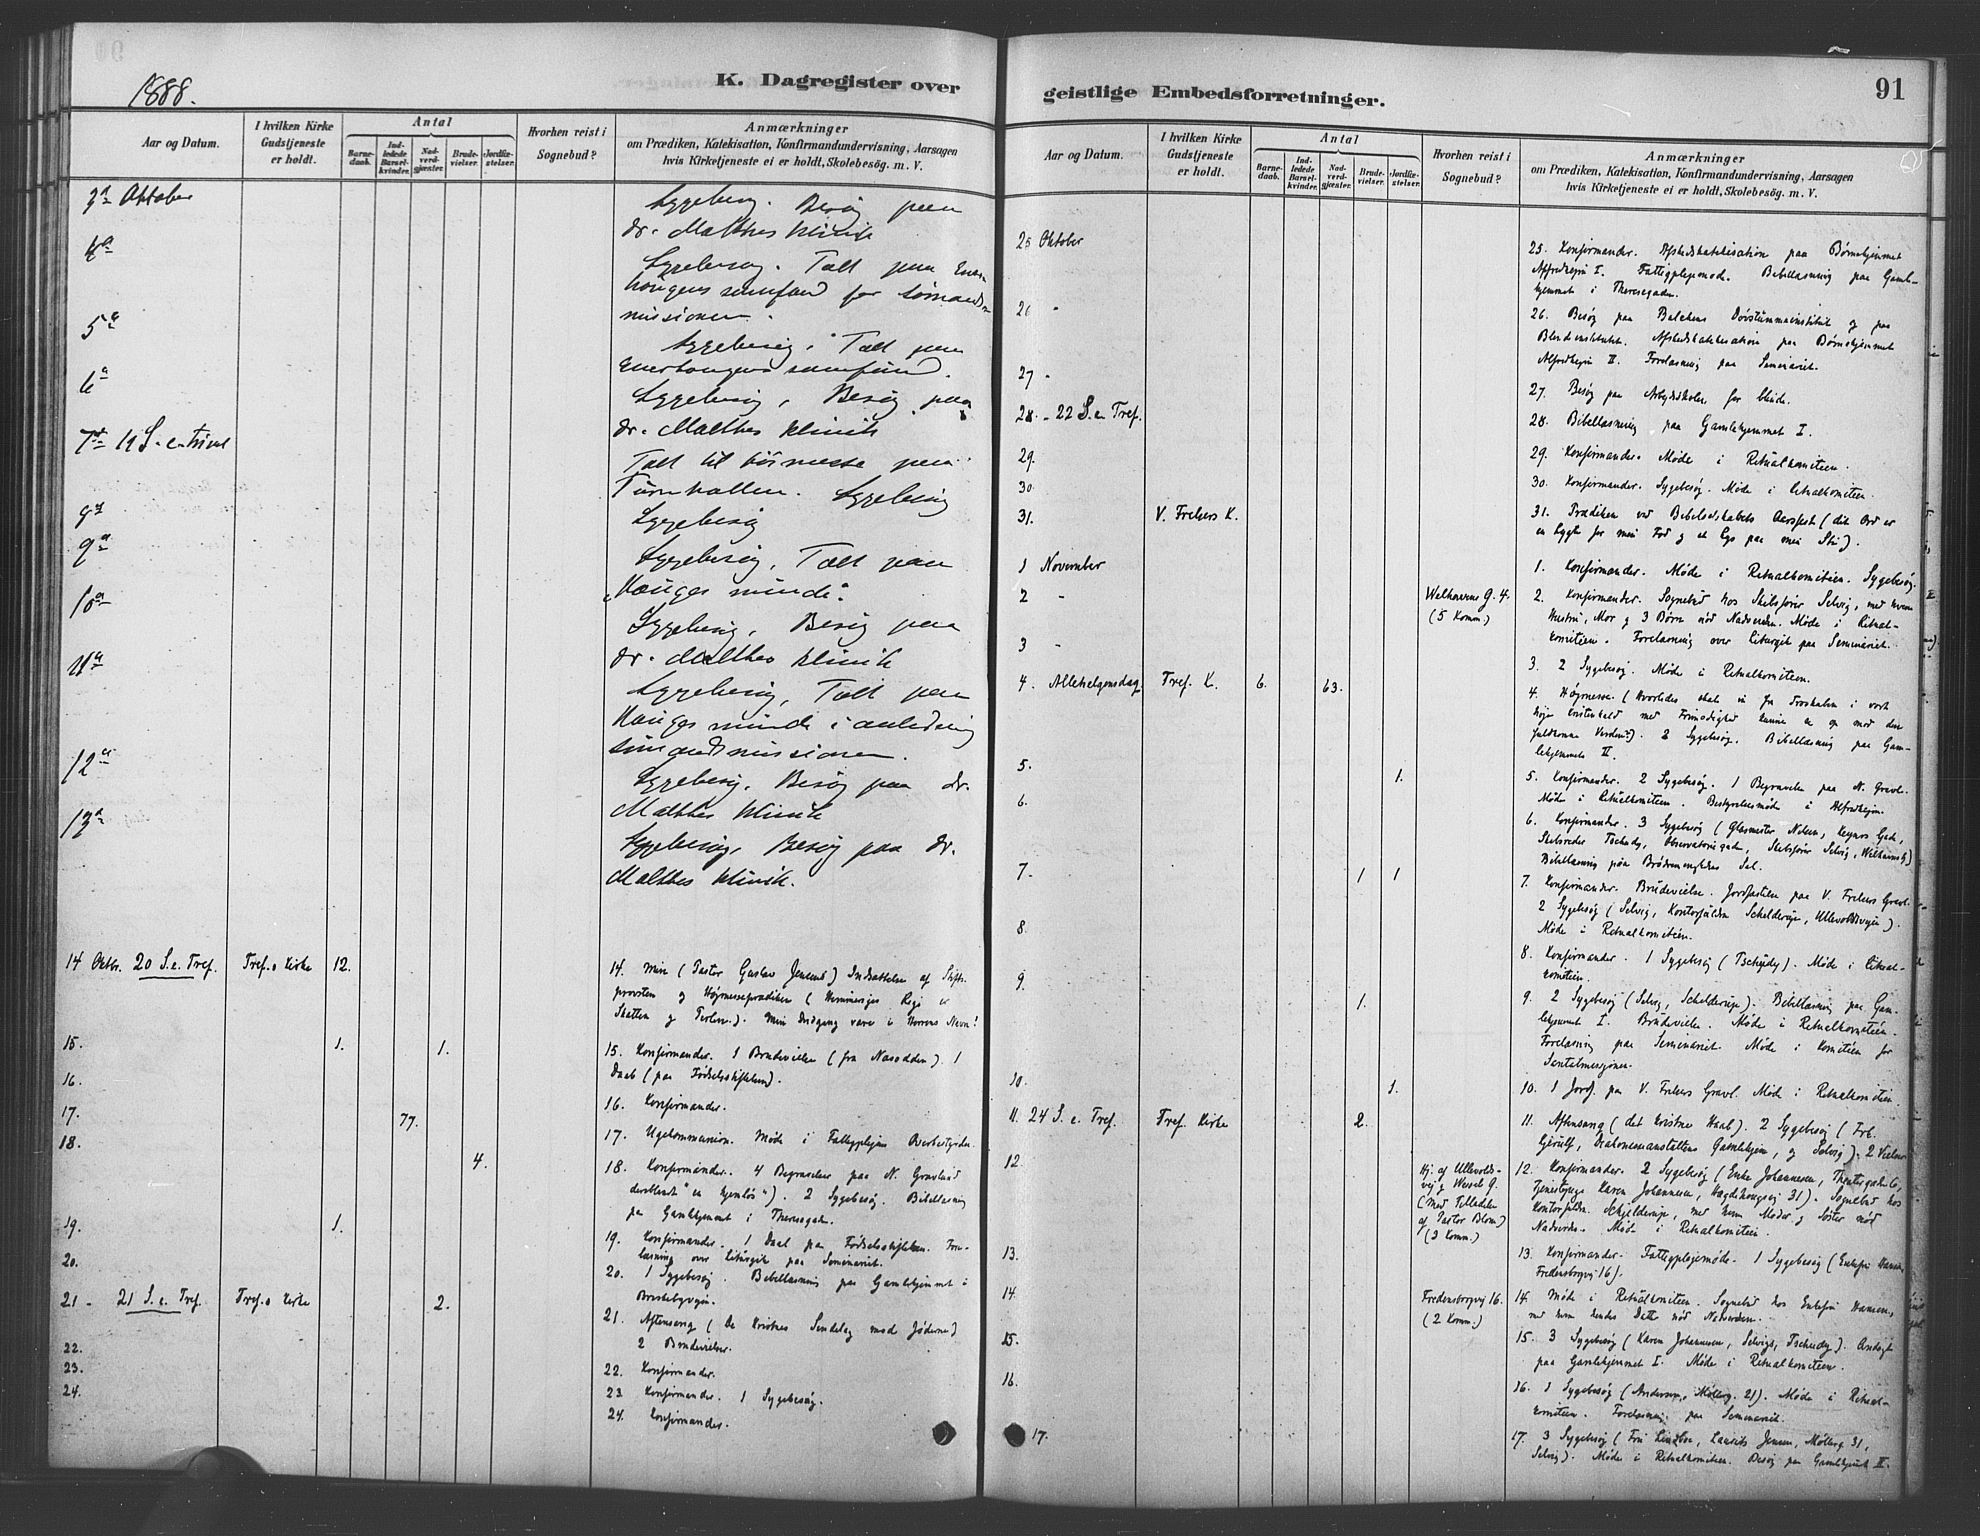 1888.
K. Dagregister over
Aar og Datum.
I hvilken Kirke Gudstjeneste er holdt.
Antal
Barnedaab.
Indledede Barselkvinder.
Nadverdgjæster.
Brudevielser.
Jordfæstelser.
Hvorhen reist i Sognebud?
Anmærkninger
om Prædiken, Katekisation, Konfirmandundervisning, Aarsagen
hvis Kirketjeneste ei er holdt, Skolebesög. m. V.
3die Oktober
Sygebesøg. Besøg paa
dr. Malthes klinik
4de
Sygebesøg. Talt paa
samfund for sømands
missionen.
5te
Sygebesøg. Talt paa
samfund.
6te
Sygebesøg, Besøg paa
dr. Malthes klinik
7de 19 S. e. trinit
Talt til paa
Turnhallen. Sygebesøg
8de
Sygebesøg
9de
Sygebesøg, Talt paa
"Hauges minde".
10de
Sygebesøg, Besøg paa
dr. Malthes klinik
11te
Sygebesøg, Talt paa
Hauges minde i anledning
sømandsmissionen.
12te
Sygebesøg, Besøg paa dr.
Malthes klinik
13de
Sygebesøg, Besøg paa dr.
Malthes klinik.
14 Oktbr. 20 S. e. Tref. Tref.s Kirke 12.
14. Min (Pastor Gustav Jensens) Indsættelse af Stifts-
provsten og Høimesseprædiken (Himmeriges Rige er
Skatten og Perlen.). Min Indgang være i Herrens Navn!
15. 1. 1.
15. Konfirmander. 1 Brudevielse (fra Nesodden). 1
Daab (paa Fødselsstiftelsen).
16.
16. Konfirmander.
17. 77.
17. Ugekommunion. Møde i Fattigplejens Overbestyrelse.
18. 4.
18. Konfirmander. 4 Begravelser paa N. Gravlund
deriblandt "en hjemløs"). 2 Sygebesøg. Bibellæsning
paa Gamlehjemmet i Theresegaden.
19. 1.
19. Konfirmander. 1 Daab paa Fødselsstiftelsen. Fore-
læsning over Liturgik paa Seminariet.
20.
20. 1 Sygebesøg. Bibellæsning paa Gamlehjemmet i
21 - 21 S. e. Tref. Tref.s Kirke 2.
21. Aftensang (De Kristnes Sindelag mod Jøderne)
2 Brudevielser.
22.
22. Konfirmander.
23.
23 Konfirmander. 1 Sygebesøg.
24.
24. Konfirmander.
geistlige Embedsforretninger.
91
Aar og Datum.
I hvilken Kirke Gudstjeneste er holdt.
Antal
Barnedaab.
Indledede Barselkvinder.
Nadverdgjæster.
Brudevielser.
Jordfæstelser.
Hvorhen reist i Sognebud?
Anmærkninger
om Prædiken, Katekisation, Konfirmandundervisning, Aarsagen
hvis Kirketjeneste ei er holdt, Skolebesög. m. V.
25 Oktober
25. Konfirmander. Afskedskatekisation paa Børnehjemmet
Alfredhejm I. Fattigplejemøde. Bibellæsning paa Gamle-
hjemmet i Theresegaden.
26 -
26. Besøg paa Balchens Døvstummeinstitut og paa
Blindeinstitutet. Afskedskatekisation paa Børnehjemmet
Alfredhejm II. Forelæsning paa Seminariet.
27 -
27. Besøg paa Arbejdsskolen for blinde.
28. - 22 S. e. Tref.
28. Bibellæsning paa Gamlehjemmet I.
29.
29. Konfirmander. Møde i Ritualkomiteen.
30.
30. Konfirmander. Sygebesøg. Møde i Ritualkomiteen.
31. V. Frelsers K.
31. Prædiken ved Bibelselskabets Aarsfest (dit Ord er
en Lygte for min Fod og et Lys paa min Sti).
1 November
1. Konfirmander. Møde i Ritualkomiteen. Sygebesøg.
2 - Welhavens G. 4. (5 Komm.)
2. Konfirmander. Sognebud hos Skibsfører Selvig, med hvem
Hustru, Mor og 3 Børn nød Nadverden. Møde i Ritual-
komiteen. Forelæsning over Liturgik paa Seminariet.
3 -
3. 2 Sygebesøg. Møde i Ritualkomiteen.
4. Allehelgensdag Tref. K. 6. 63.
4. Høimesse. (Hvorledes skal vi fra Troskabens i vort
høje Kristenkald med Frimodighed kunne se op mod den
fuldkomne Verden?). 2 Sygebesøg. Bibellæsning paa Gam-
lehjemmet II.
5. 1.
5. Konfirmander. 2 Sygebesøg. 1 Begravelse paa N. Gravl.
Møde i Ritualkomiteen. Bestyrelsesmøde i Alfredhejm.
6.
6. Konfirmander. 3 Sygebesøg (Glasmester Nilsen, Keysers Gade,
Skibsreder Tschudy, Observatoriegade, Skibsfører Selvig, Welhavensg)
Bibellæsning paa Brødremenighedens Sal.
7. 1 1
7. Konfirmander. Brudevielse. Jordfæstelse paa V. Frelsers Gravl.
2 Sygebesøg (Selvig, Kontorfuldm. Schelderup, Ullevoldsvejen).
Møde i Ritualkomiteen.
8.
8. Konfirmander. 1 Sygebesøg (Tschudy). Møde i Ritual-
komiteen.
9. 1.
9. 2 Sygebesøg (Selvig, Schelderup). Bibellæsning paa Gam-
lehjemmet I. Brudevielse. Møde i Ritualkomiteen.
Forelæsning paa Seminariet. Møde i Komiteen for
Santalmissjonen.
10. 1.
10. 1 Jordf. paa V. Frelsers Gravl. Møde i Ritualkomiteen
11. 24 S. e. Tref. Tref. Kirke 2.
11. Aftensang (det kristne Haab). 2 Sygebesøg (Frk.
Gjerulf, Diakonisseanstaltens Gamlehjem, og Selvig). 2 Vielser
12. Hj. af Ullevolds-
vej og Wessels G.
(Med Tilladelse
af Pastor Blom)
(2 Komm.)
12. Konfirmander. 2 Sygebesøg (Enke Johannesen, Thereses 6,
Tjenestepige Karen Johannesen, Hægdehougsvej 31). Sognebud hos
Kontorfuldm. Schjelderup, med hvem Moder og Søster nød
Nadverden. Møde i Ritualkomiteen.
13.
13. Konfirmander. Fattigplejemøde. 1 Sygebesøg (Enkefru Hansen,
Fredensborgvej 16).
14. Fredensborgvej 16. (2 Komm.)
14. Møde i Ritualkomiteen. Sognebud hos Enkefru Hansen,
med hvem hendes Datter nød Nadverden.
15.
15. 3 Sygebesøg (Karen Johannesen, Selvigs, Tschudy). Andagt
paa Gamlehjemmet I. Møde i Ritualkomiteen.
16.
16. 1 Sygebesøg (Andersen, Møllerg. 21). Møde i Ritual-
komiteen. Forelæsning paa Seminariet.
17.
17. 3 Sygebesøg (Fru Lindboe, Laurits Jensen, Møllerg 31,
Selvig). Møde i Ritualkomiteen. Besøg paa Gamlehjemmet II.